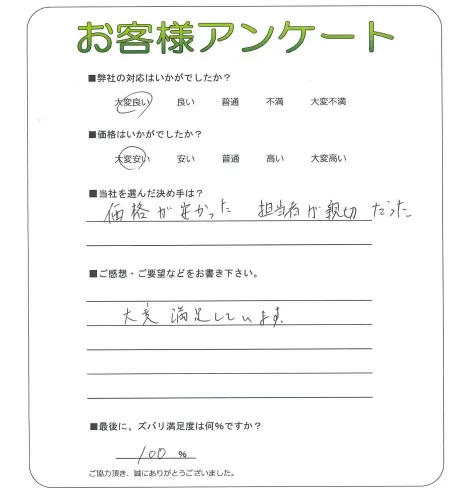 お客様アンケート
■弊社の対応はいかがでしたか？
大変良い 良い 普通 不満 大変不満
■価格はいかがでしたか？
大変安い 安い 普通 高い 大変高い
■当社を選んだ決め手は？
価格が安かった 担当者が親切だった
■ご感想・ご要望などをお書き下さい。
大変満足しています。
■最後に、ズバリ満足度は何％ですか？
100 %
ご協力頂き、誠にありがとうございました。